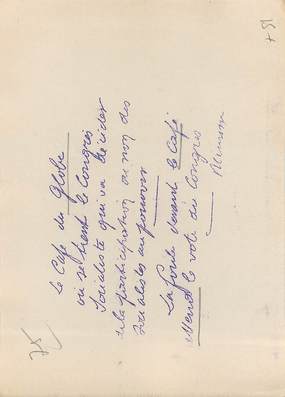 Le Café du Globe
où se tient le Congrès
Socialiste qui va décider
de la participation ou non des
socialistes au pouvoir
La foule devant le Café
attend le vote du Congrès
Meurisse
75